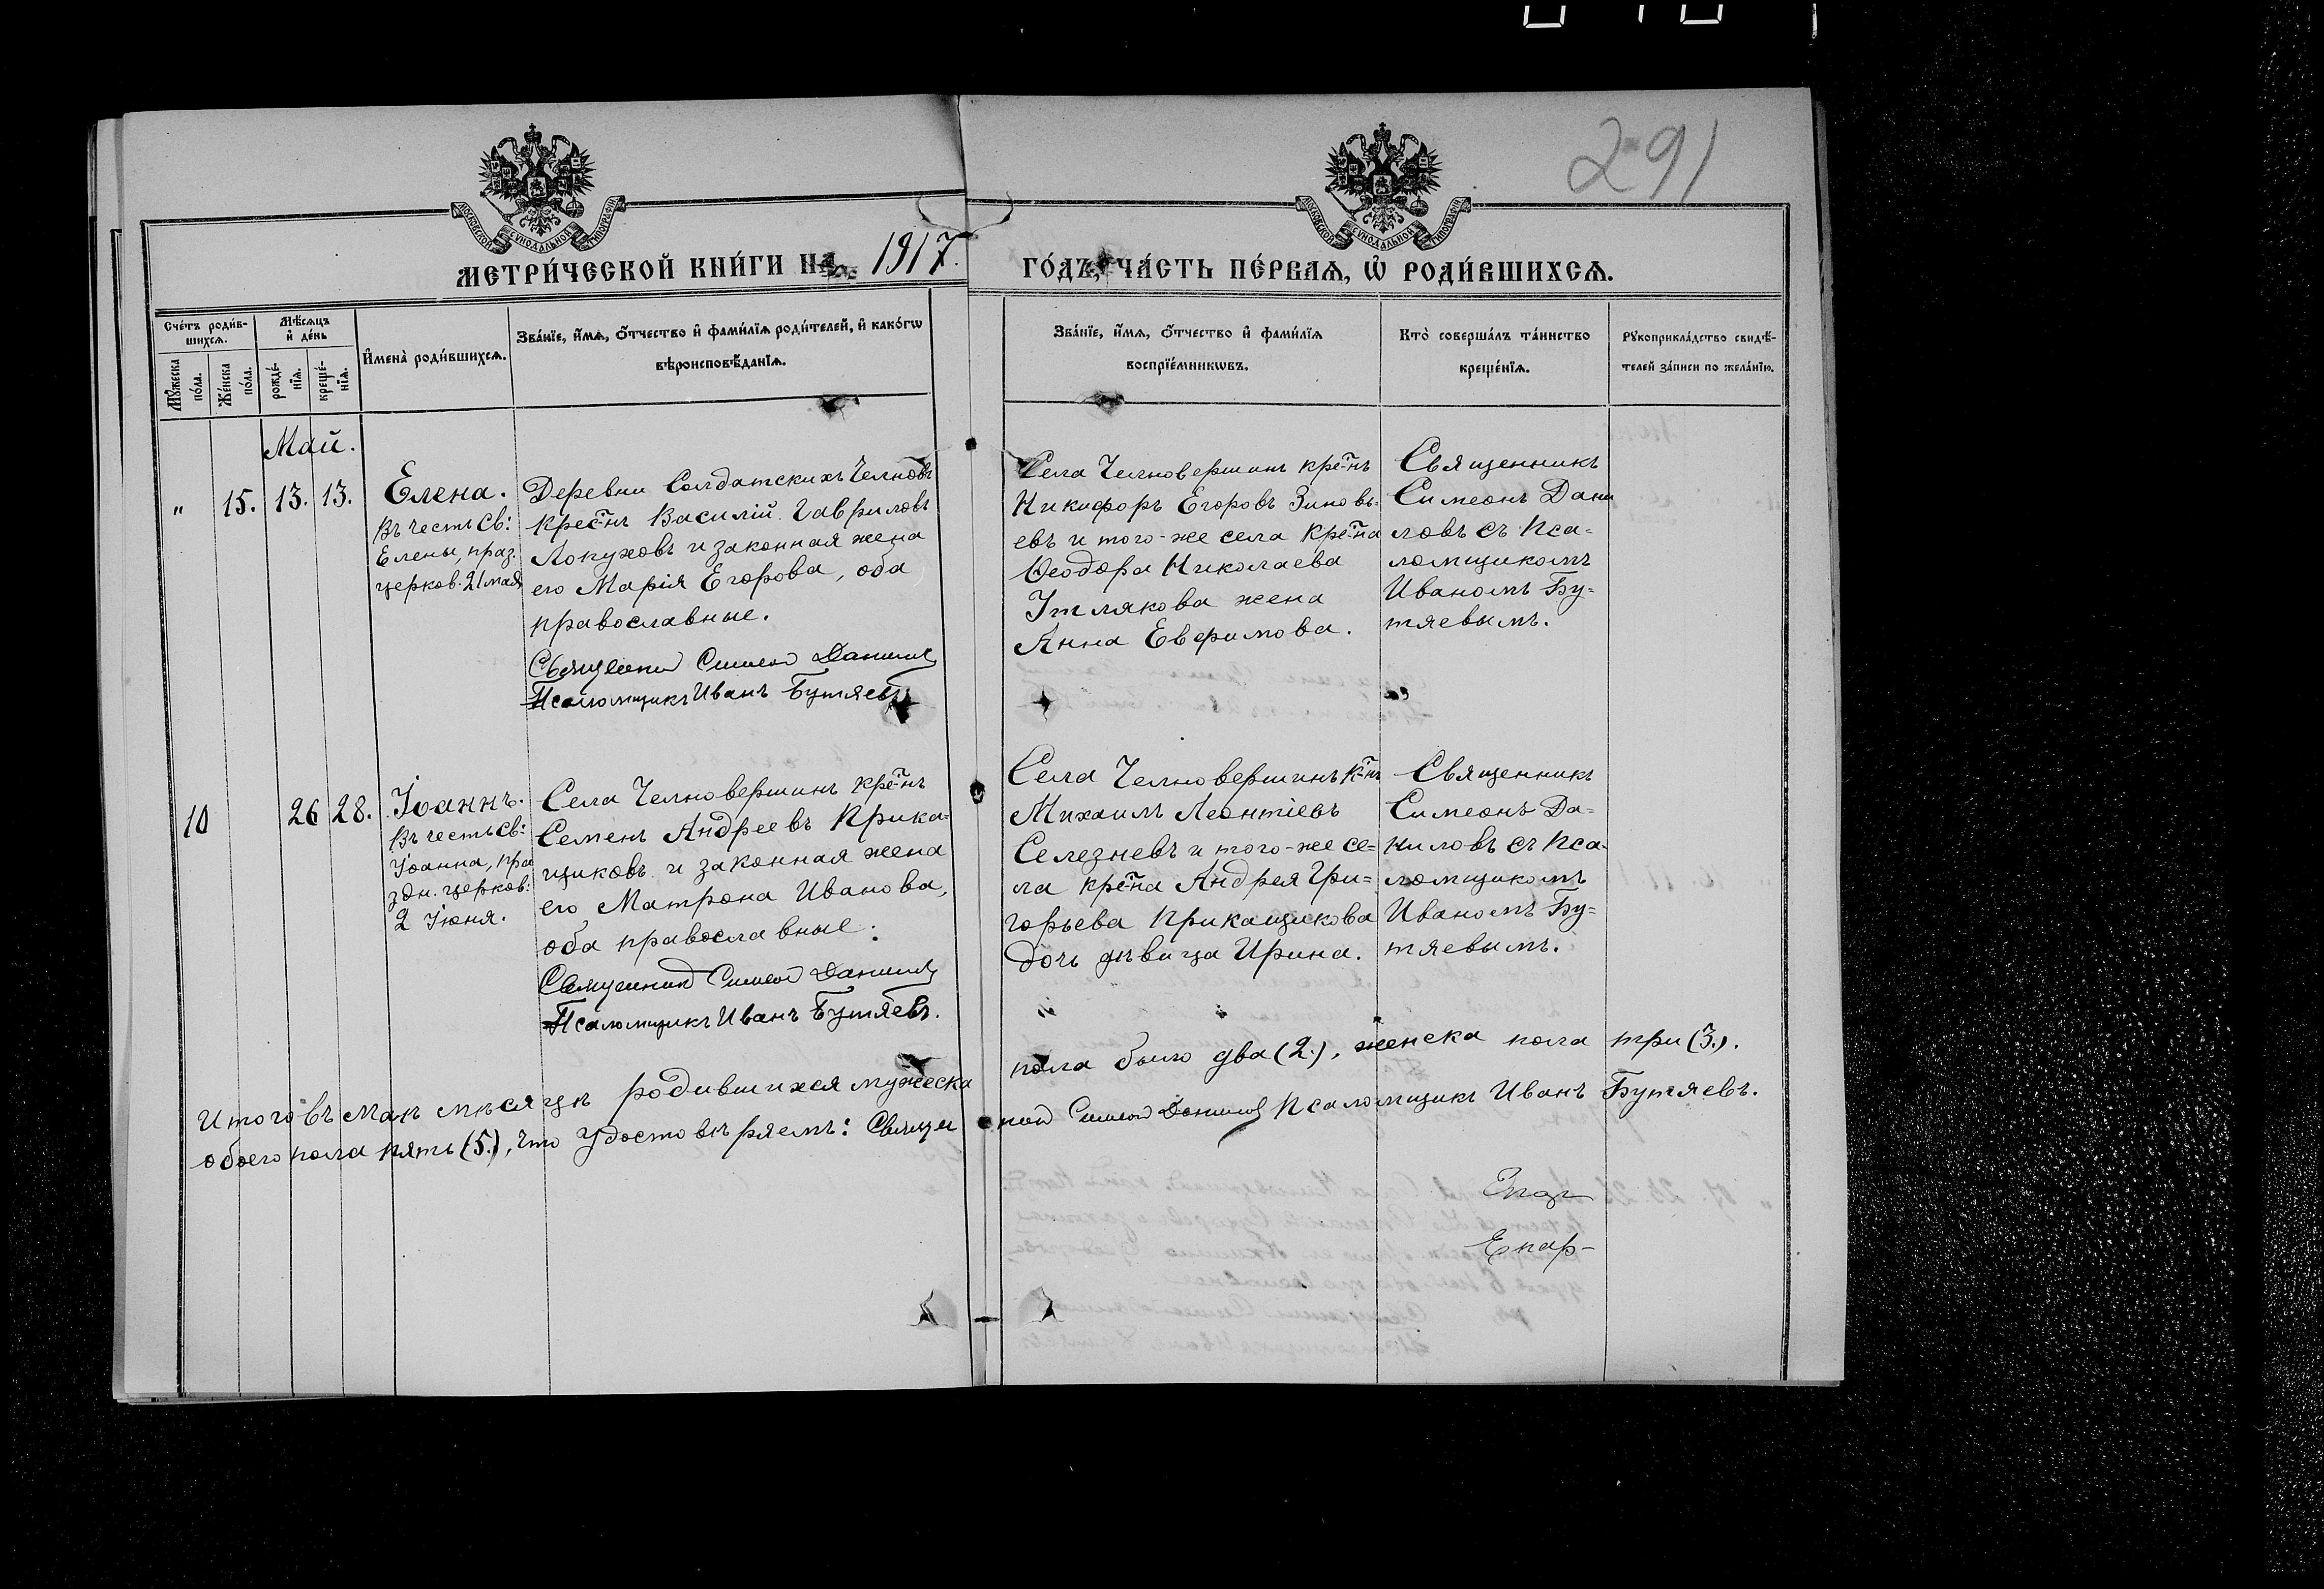 291
МОСКОВСКОЙ СУНОДАЛЬНОЙ ТИПОГРАФІИ
МОСКОВСКОЙ СУНОДАЛЬНОЙ ТИПОГРАФІИ
МЕТРИ́ЧЕСКОЙ КНИ́ГИ НА 1917. ГО́ДЪ, ЧА́СТЬ ПЕ́РВАѦ, Ѡ҆ РОДИ́ВШИХСѦ.
Сче́тъ роди́в-
шихсѧ.
Мꙋ́жеска по́ла.
Же́нска по́ла.
Мѣ́сѧцъ
и҆ де́нь
рожде́-
нїѧ.
креще́-
нїѧ.
И҆мена̀ роди́вшихсѧ.
Зва́нїе, и҆́мѧ, ѻ҆́тчество и҆ фами́лїѧ роди́телей, и҆ како́гѡ
вѣроисповѣ́данїѧ.
Зва́нїе, и҆́мѧ, ѻ҆́тчество и҆ фами́лїѧ
воспрїе́мникѡвъ.
Кто̀ соверша́лъ та́инство
креще́нїѧ.
Рꙋкоприкла́дство свидѣ́-
телей за́писи по жела́нїю.
Май.
" 15. 13. 13.
Елена.
Въ честь Св:
Елены, праз.
церков. 21 мая
Деревни Солдатскихъ Челновъ
крес-нъ Василій Гавриловъ
Локуховъ и законная жена
его Марія Егорова, оба
православные.
Священник Симеон Данилов
Псаломщикъ Иванъ Бутяевъ
Села Челновершинъ кре-нъ
Никифоръ Егоровъ Зиновь-
евъ и того-же села кре-на
Ѳеодора Николаева
Утлякова жена
Анна Евфимова.
Священникъ
Симеонъ Дани
ловъ съ Пса-
ломщикомъ
Иваномъ Бу-
тяевымъ.
10 26 28.
Іоаннъ.
Въ честь Св:
Іоанна, пра
здн. церков:
2 Іюня.
Села Челновершинъ кре-нъ
Семенъ Андреевъ Прика-
щиковъ и законная жена
его Матрона Иванова,
оба православные.
Священник Симеон Данилов
Псаломщикъ Иванъ Бутяевъ.
Села Челновершинъ к-нъ
Михаилъ Леонтіевъ
Селезневъ и того-же се-
ла кре-на Андрея Гри-
горьева Прикащикова
дочь дѣвица Ирина.
Священникъ
Симеонъ Да-
ниловъ съ Пса-
ломщикомъ
Иваномъ Бу-
тяевымъ.
Итого въ Маѣ мѣсяцѣ родившихся мужеска пола было два (2.), женска пола три (3.).
обоего пола пять (5.), что удостовѣряемъ: Священник Симеон Данилов Псаломщикъ Иванъ Бутяевъ.